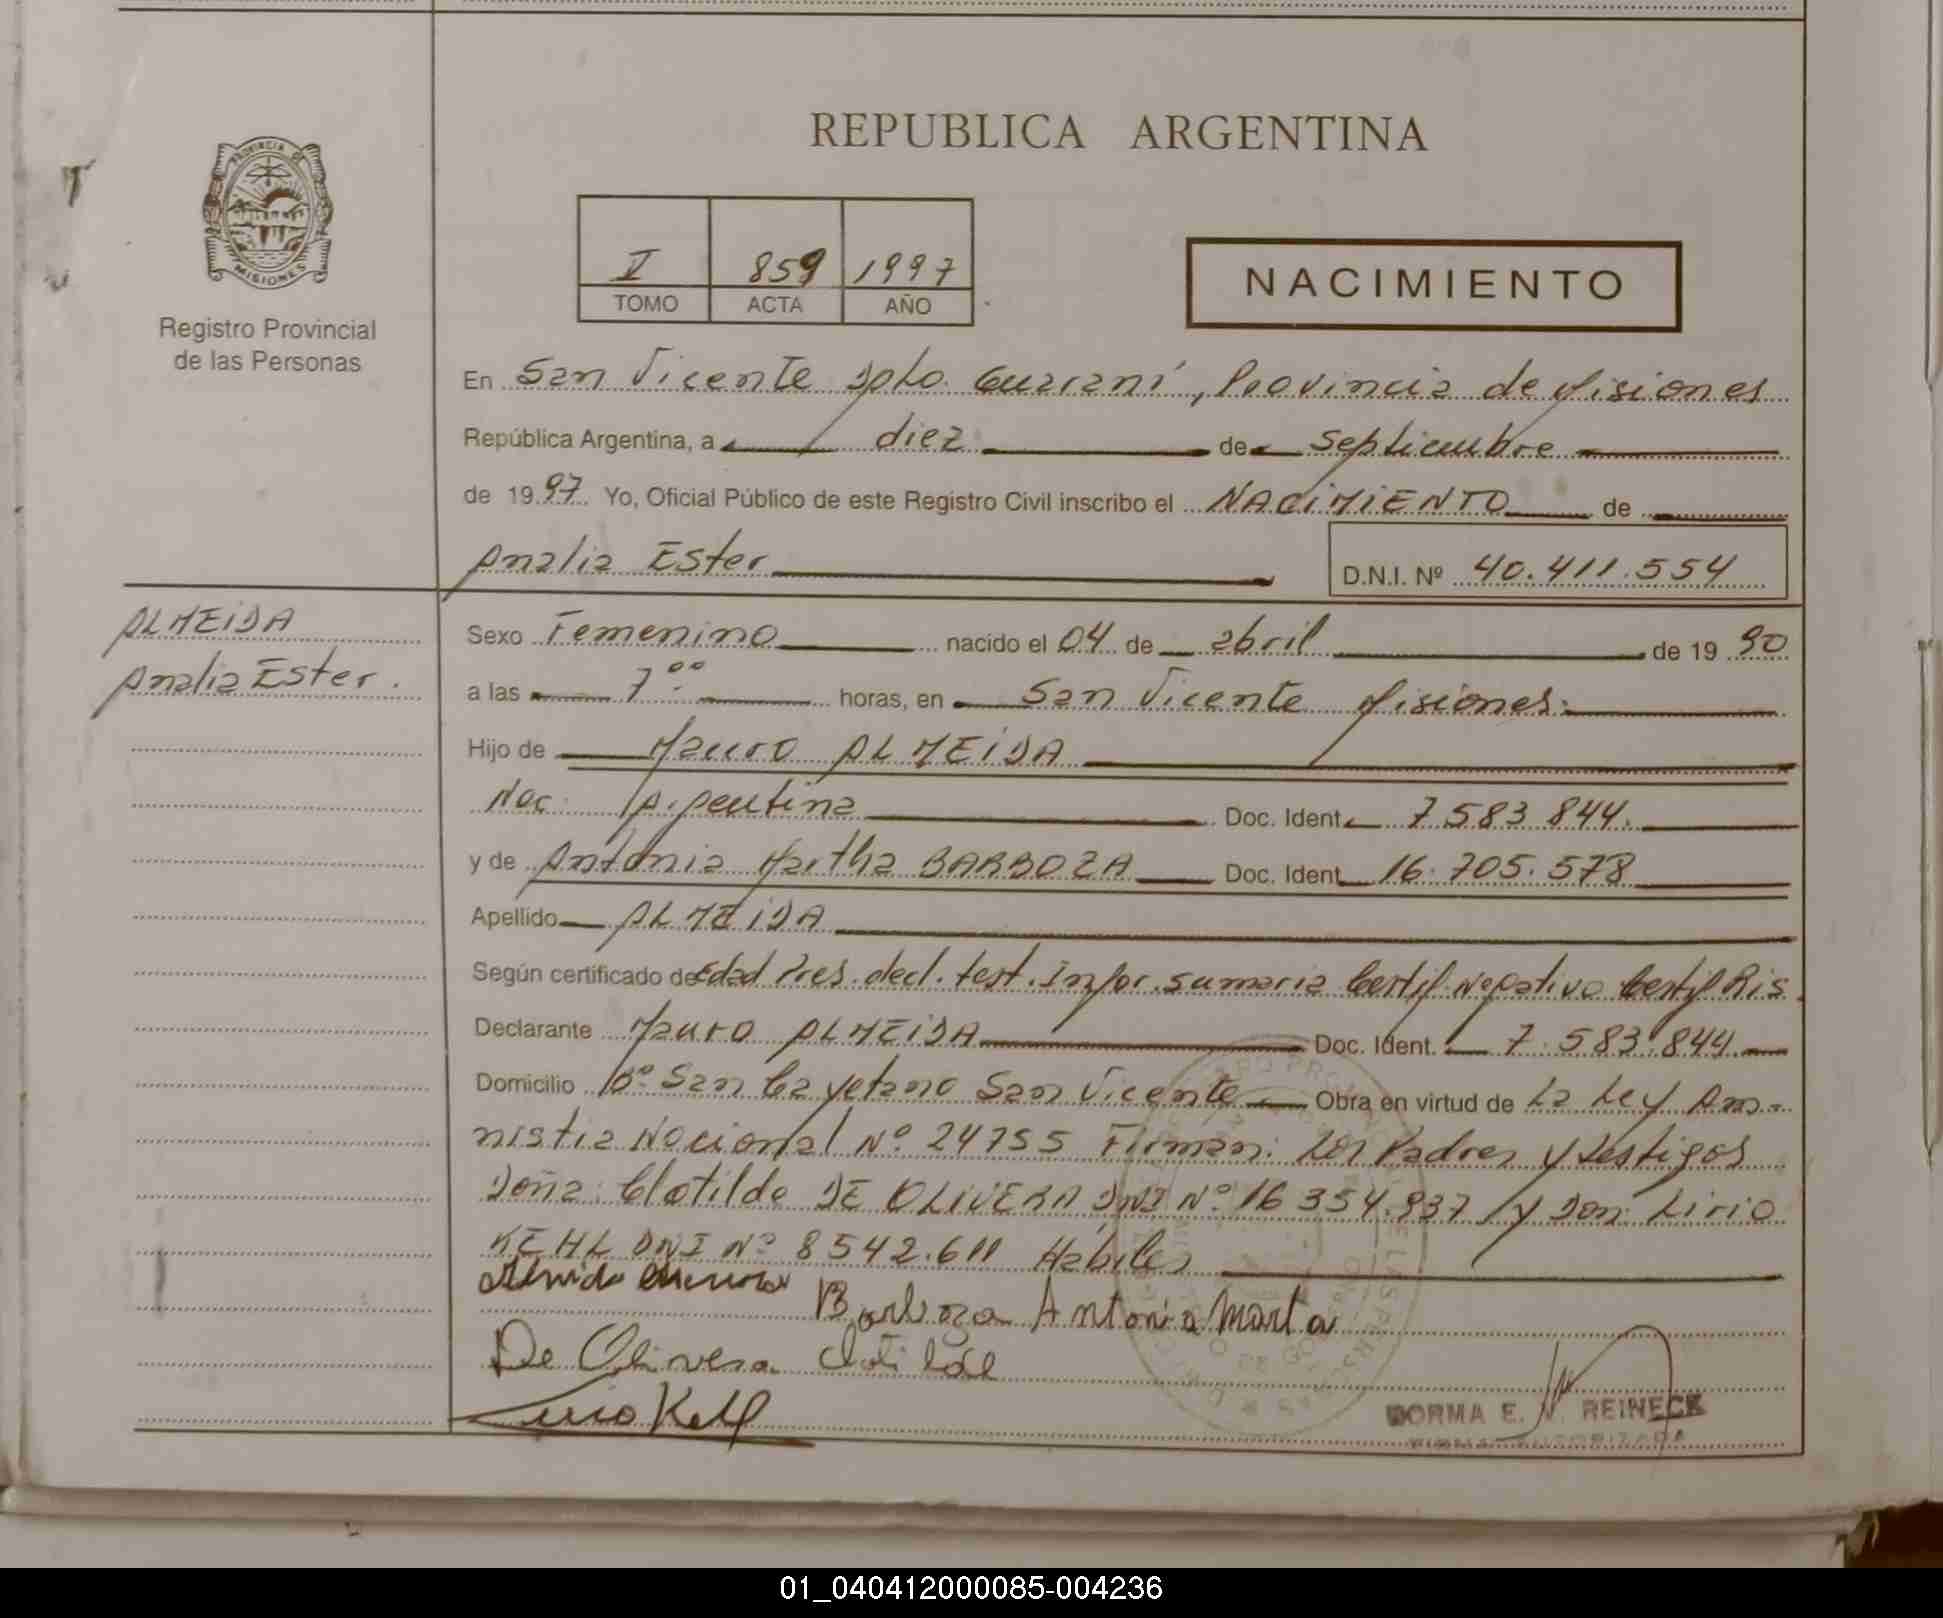 REPUBLICA ARGENTINA
PROVINCIA DE
MISIONES
Registro Provincial
de las Personas
V 859 1997
TOMO ACTA AÑO
NACIMIENTO
En San Vicente Dpto. Guaraní, Provincia de Misiones
República Argentina, a diez de Septiembre
de 1997 Yo, Oficial Público de este Registro Civil inscribo el NACIMIENTO de
Analia Ester
D.N.I. Nº 40.411.554
ALMEIDA
Analia Ester.
Sexo Femenino nacido el 04 de abril de 1990
a las 7:00 horas, en San Vicente Misiones.
Hijo de Mauro ALMEIDA
Nac. Argentina Doc. Ident. 7.583.844.
y de Antonia Martha BARBOZA Doc. Ident. 16.705.578
Apellido ALMEIDA
Según certificado de Edad Pres. decl. test. Infor. sumaria Certif. Negativo Certif Ris.
Declarante Mauro ALMEIDA Doc. Ident. 7.583.844
Domicilio Bº San Cayetano San Vicente Obra en virtud de La Ley Am-
nistia Nacional Nº 24755 Firman: Los Padres y testigos
Doña: Clotilde DE OLIVERA DNI Nº 16.354.937 y Don: Lirio
KEHL DNI Nº 8542.611 Habiles
Barboza Antonia Marta
De Olivera Clotilde
Lirio Kehl
NORMA E. V. REINECK
FIRMA AUTORIZADA
01_040412000085-004236